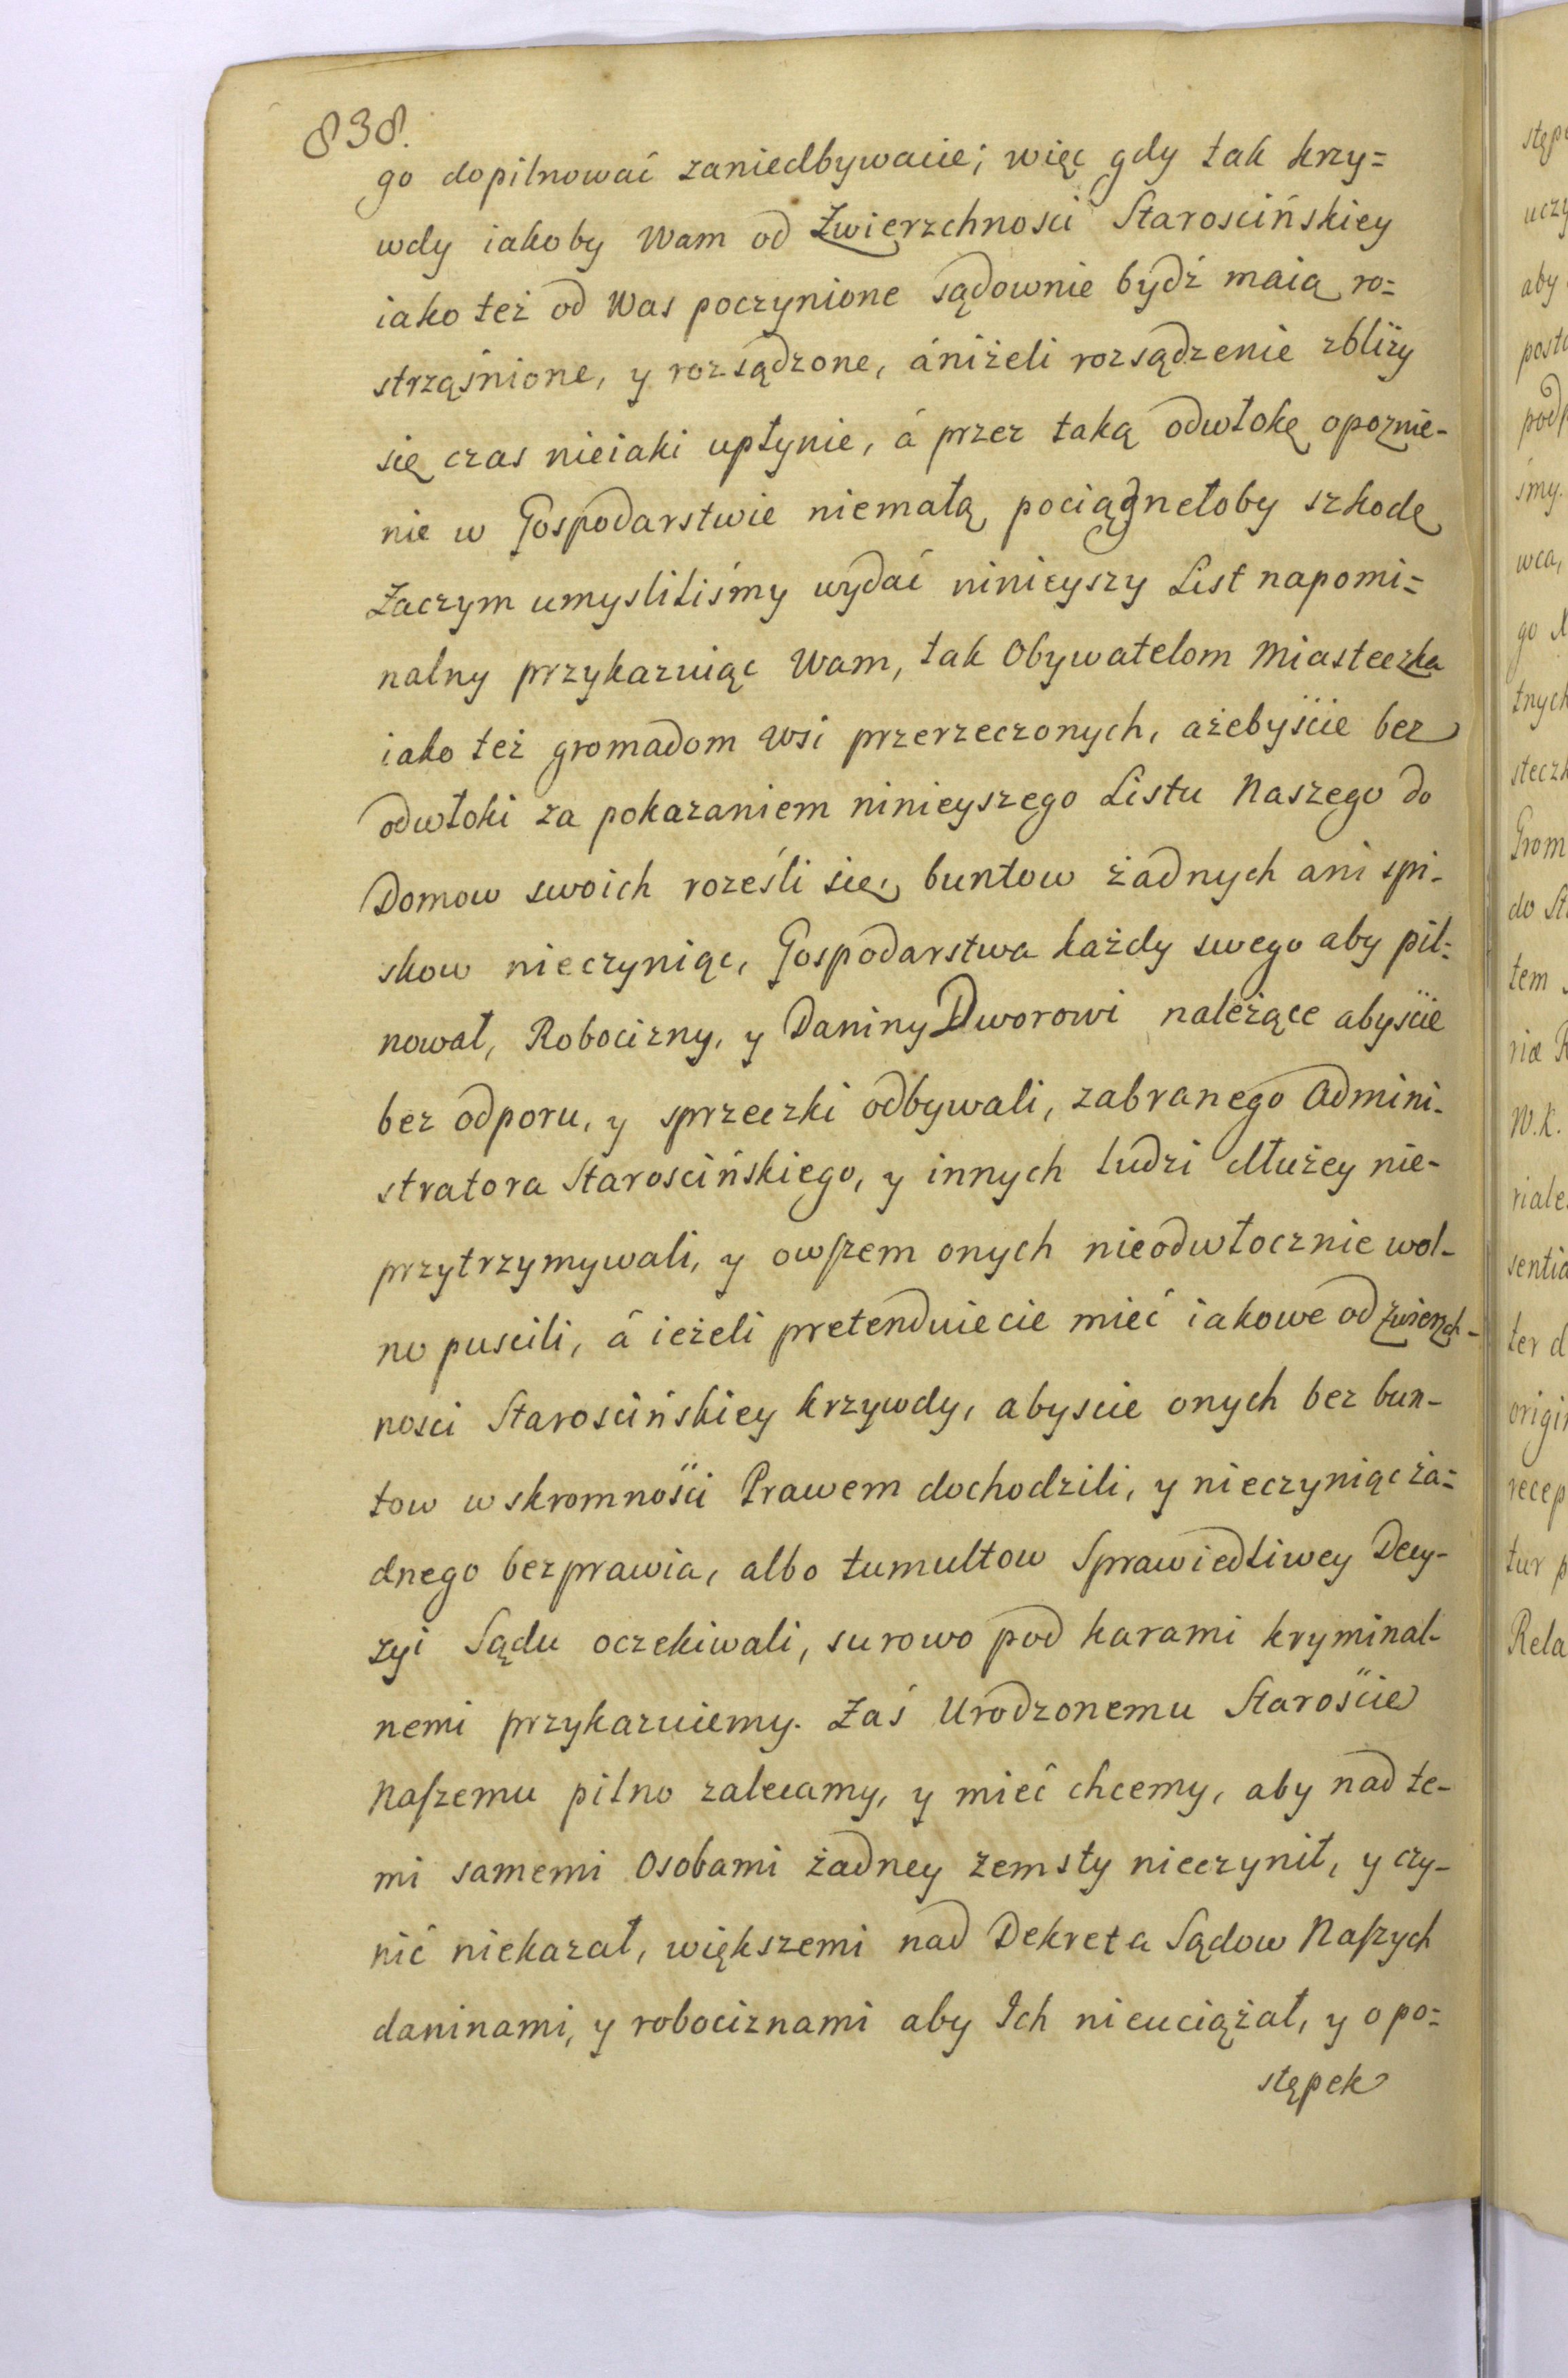 838.
go dopilnować zaniedbywacie; więc gdy tak krzy=
wdy iakoby Wam od Zwierzchnosci Starościńskiey
iako też od Was poczynione sądownie bydź maią ro=
strząśnione, y rozsądzone, ániżeli rozsądzenie zbliży
się czas nieiaki upłynie, á przez taką odwłokę opoznie-
nie w Gospodarstwie niemałą pociągnełoby szkodę
Zaczym umysliliśmy wydać ninieyszy List napomi=
nalny przykazuiąc Wam, tak Obywatelom Miasteczka
iako też gromadom Wsi przerzeczonych, ażebyście bez
odwłoki za pokazaniem ninieyszego Listu Naszego do
Domow swoich roześli się, buntow żadnych ani spi-
skow nieczyniąc, Gospodarstwa każdy swego aby pil=
nował, Robocizny, y Daniny Dworowi należące abyście
bez odporu, y sprzeczki odbywali, zabranego Admini-
stratora Starościńskiego, y innych ludzi dłużey nie-
przytrzymywali, y owszem onych nieodwłocznie wol-
no puscili, á ieżeli pretenduiecie mieć iakowe od Zwierzch-
nosci Starościńskiey krzywdy, abyscie onych bez bun-
tow w skromności Prawem dochodzili, y nieczyniąc ża=
dnego bezprawia, albo tumultow Sprawiedliwey Decy-
zyi Sądu oczekiwali, surowo pod karami kryminal-
nemi przykazuiemy. Zaś Urodzonemu Staroście
Naszemu pilno zalecamy, y mieć chcemy, aby nad te-
mi samemi Osobami żadney zemsty nieczynił, y czy-
nić niekazał, większemi nad Dekreta Sądow Naszych
daninami, y robociznami aby Ich nieuciążał, y o po=
stępek
stęp
uczy
aby
posta
podp
śmy.
wca,
go
tnych
steczk
Grom
do St
tem
riæ R
W.K.
riale
sentia
ter d
origin
recep
tur p
Rela